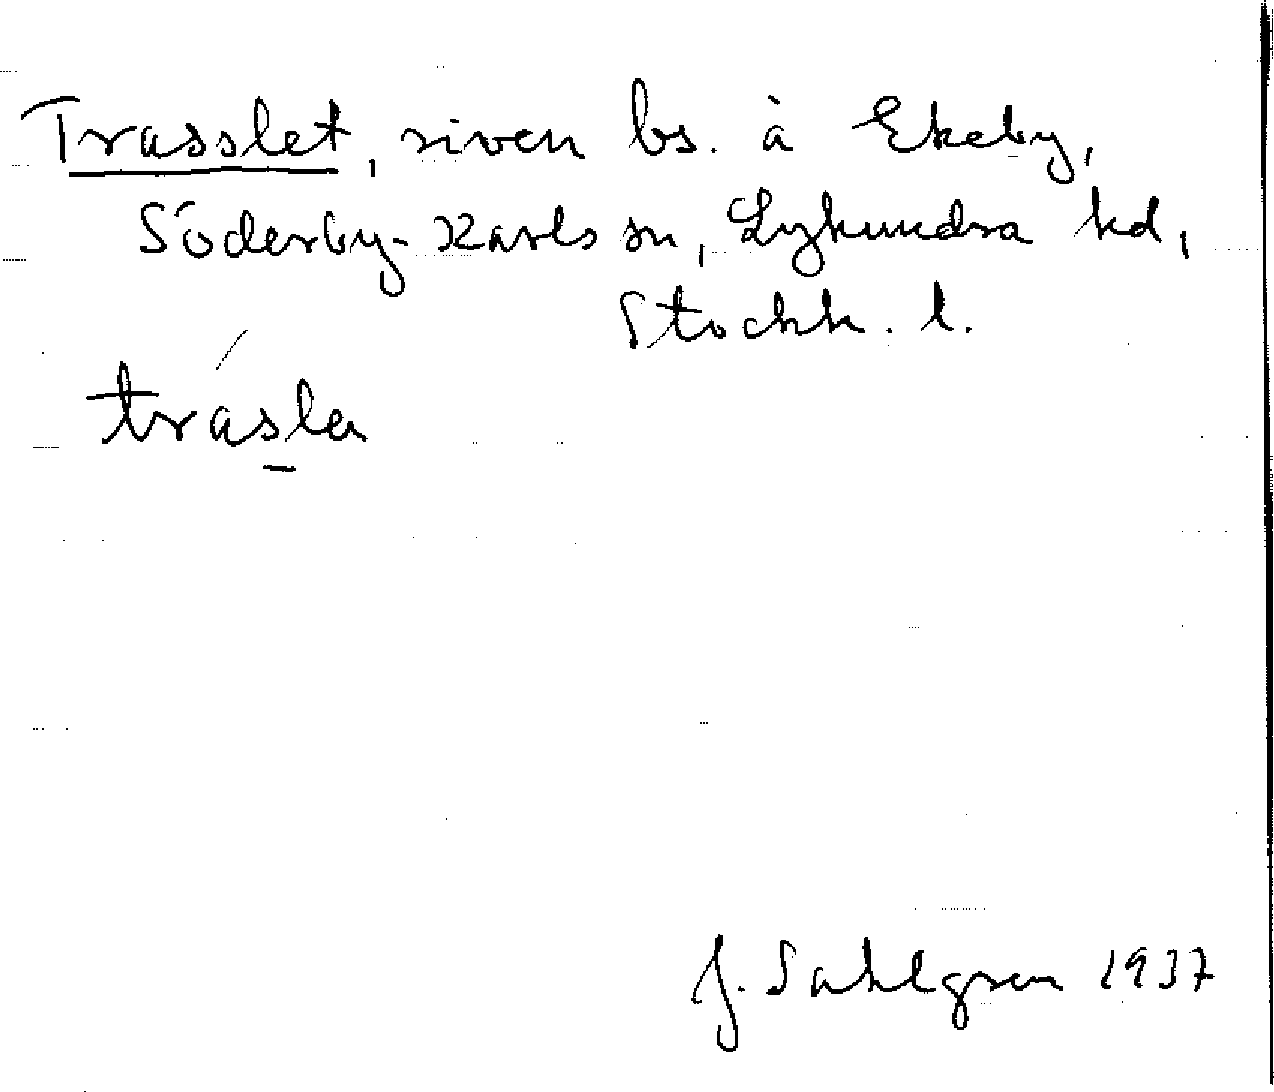 Trasslet, riven bs. à Ekeby,
Söderby-Karls sn, Lyhundra hd,
Stockh. l.
trásla
J. Sahlgren 1937